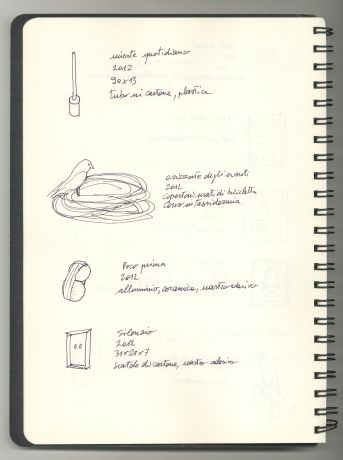 niente quotidiano
2012
90x13
tubo in cartone, plastica
orizzonte degli eventi
2012
copertoni usati di bicicletta
corvo in tassidermia
Poco prima
2012
alluminio, ceramica, nastro adesivo
Silenzio
2012
31x21x7
scatola di cartone, nastro adesivo